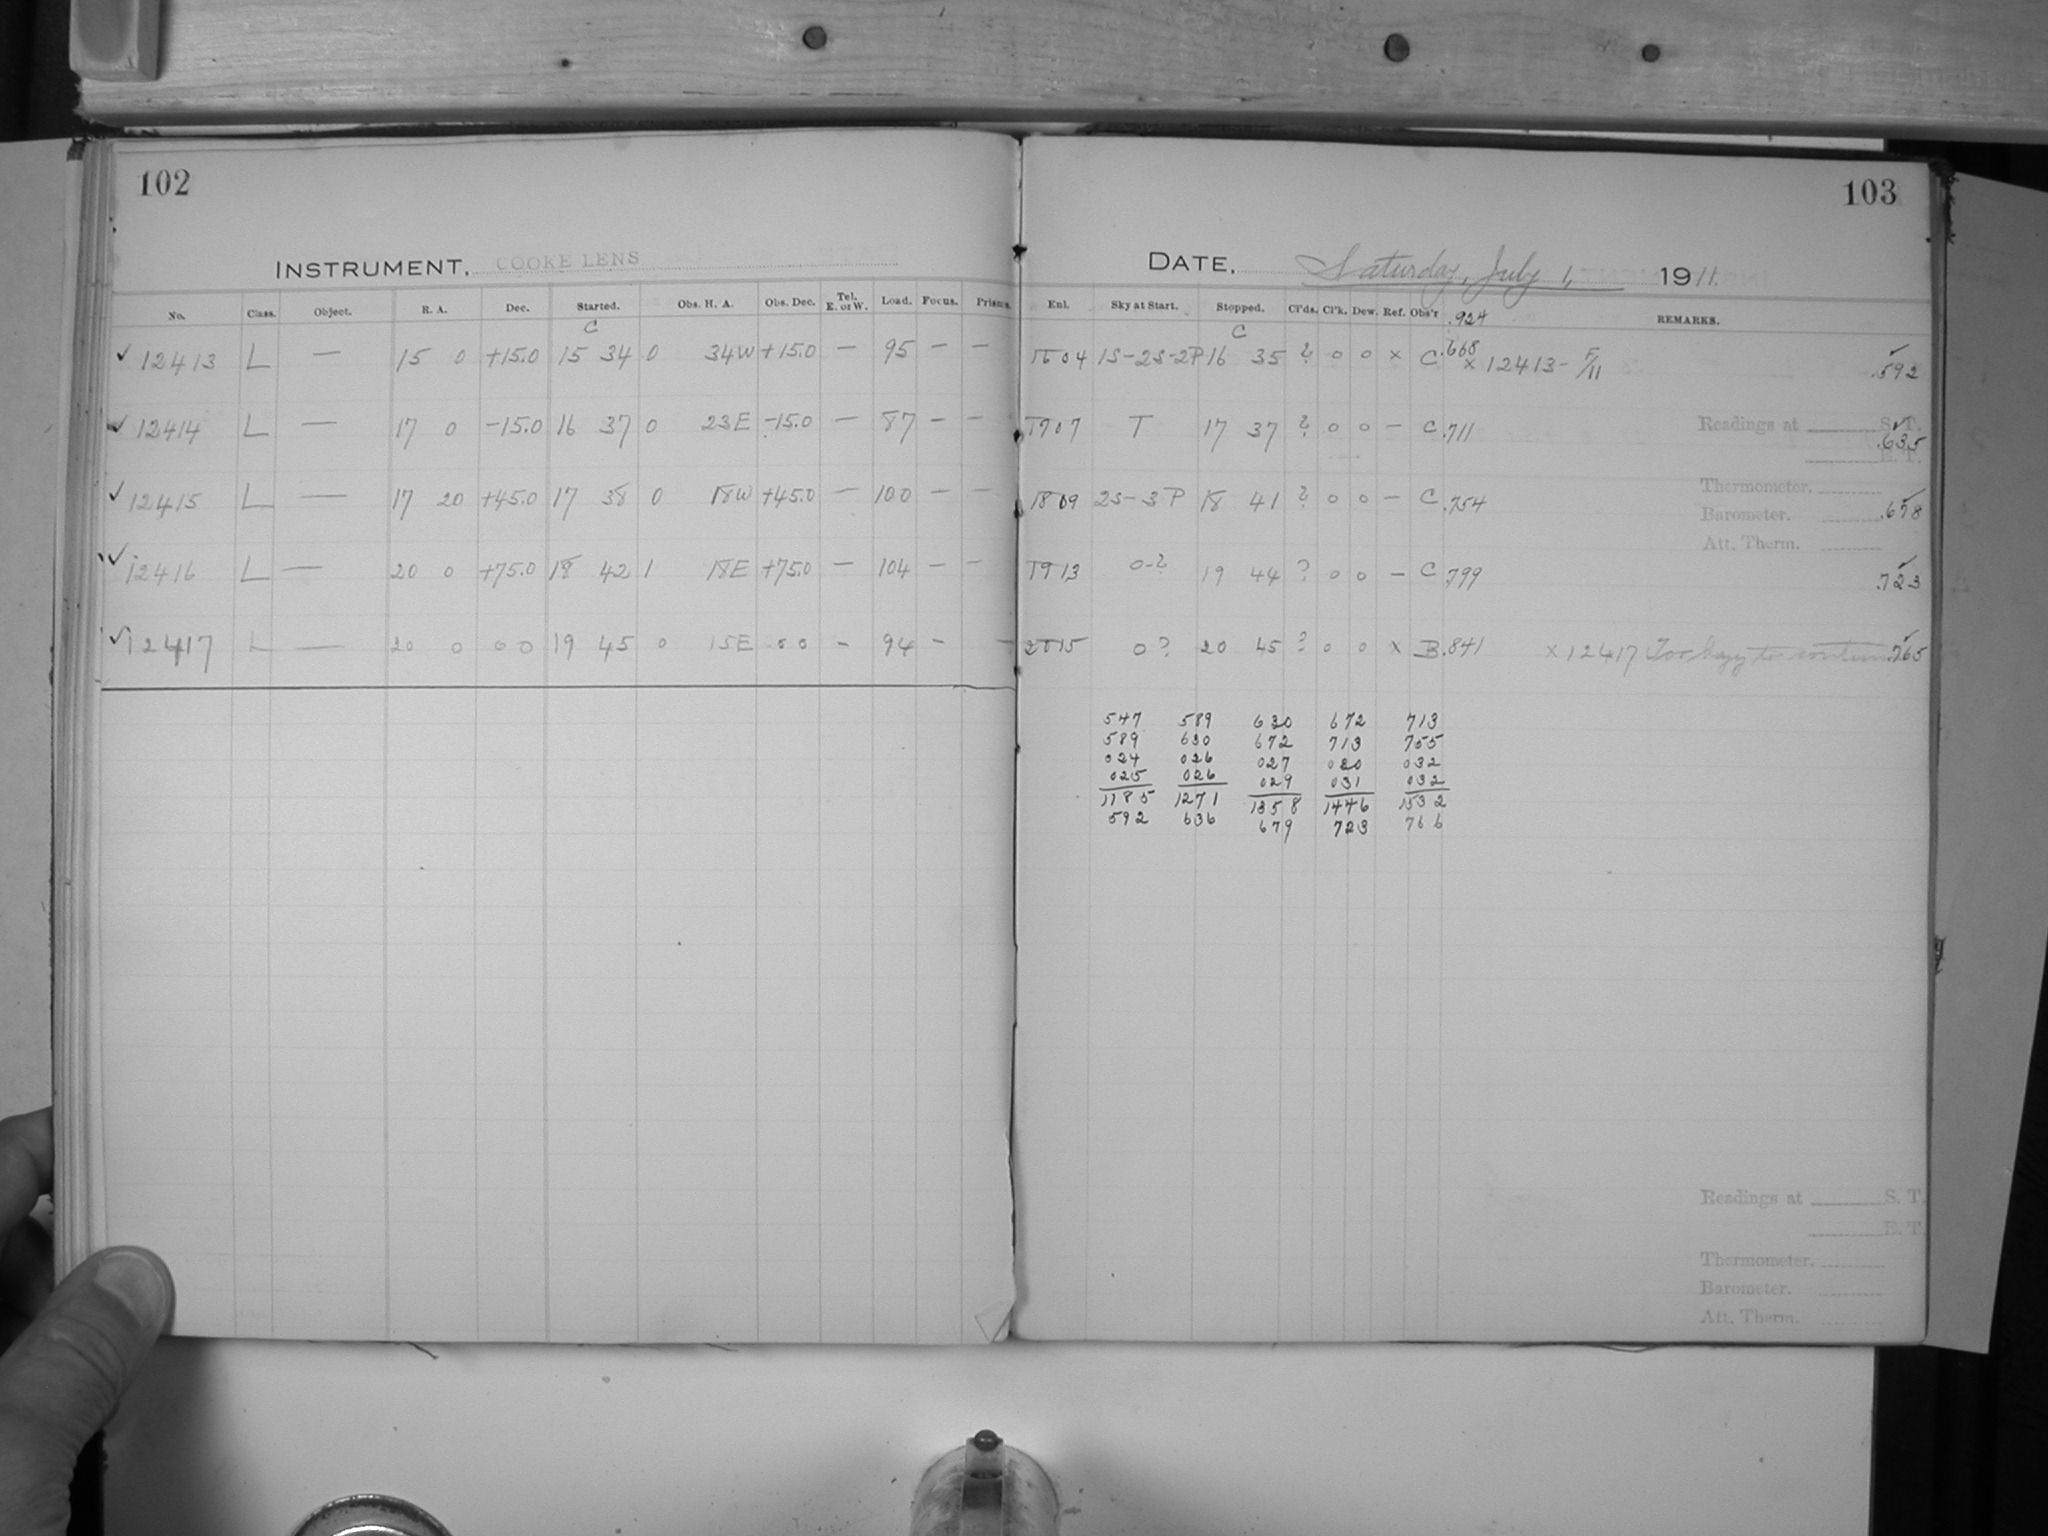 102
INSTRUMENT, COOKE LENS
No. Class. Object. R. A. Dec. Started. Obs. H. A. Obs. Dec. Tel. E. or W. Load. Focus. Prisms.
C
✓ 12413 L — 15 0 +15.0 15 34 0 34W +15.0 — 95 — —
✓ 12414 L — 17 0 -15.0 16 37 0 23E -15.0 — 87 — —
✓ 12415 L — 17 20 +45.0 17 38 0 18W +45.0 — 100 — —
✓ 12416 L — 20 0 +75.0 18 42 1 18E +75.0 — 104 — —
✓ 12417 L — 20 0 0 0 19 45 0 15E 0 0 — 94 — —
103
DATE, Saturday, July 1, 1911.
Enl. Sky at Start. Stopped. Cl'ds. Cl'k. Dew. Ref. Obs'r .924 REMARKS.
C
1604 1S-2S-2P 16 35 ? 0 0 × C .668 × 12413 - F/11 .592
1707 T 17 37 ? 0 0 — C .711 .635
1809 2S-3P 18 41 ? 0 0 — C .754 .678
1913 0-? 19 44 ? 0 0 — C .799 .723
2015 0? 20 45 ? 0 0 × B .841 × 12417 Too hazy to continue .765
Readings at S. T.
E. T.
Thermometer.
Barometer.
Att. Therm.
547 589 630 672 713
589 630 672 713 755
024 026 027 030 032
025 026 029 031 032
1185 1271 1358 1446 1532
592 636 679 723 766
Readings at S. T.
E. T.
Thermometer.
Barometer.
Att. Therm.